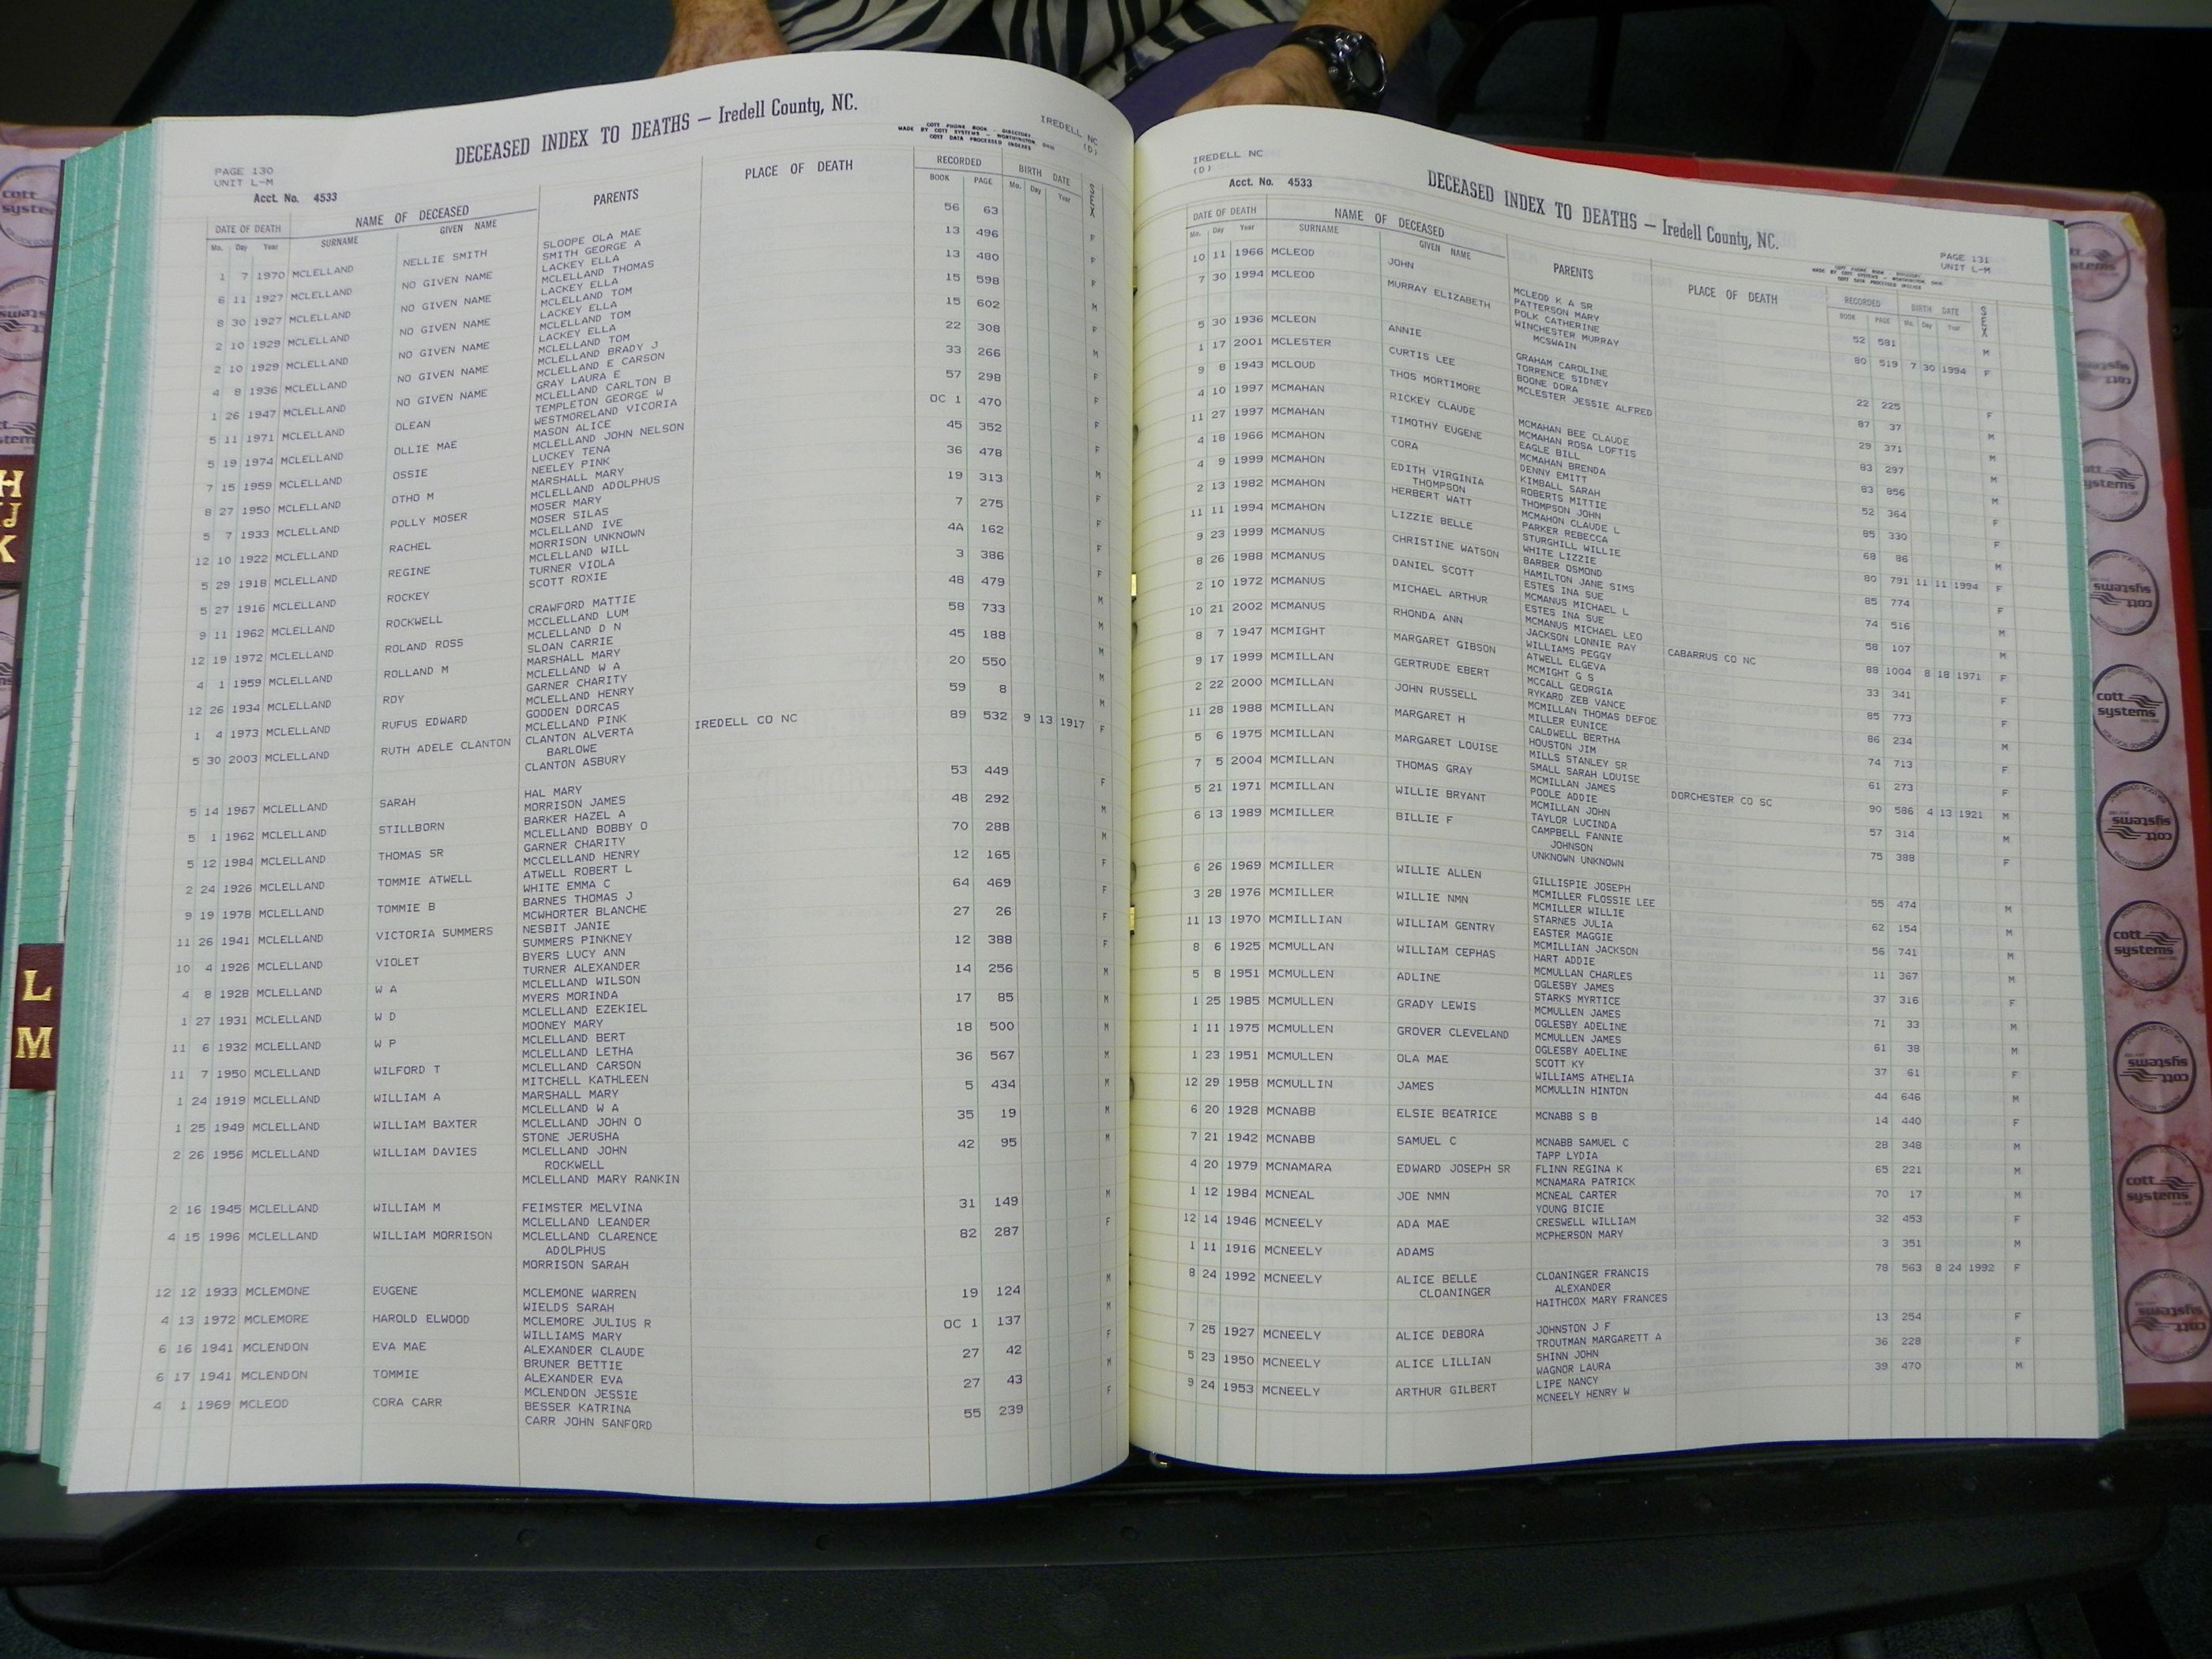 DECEASED INDEX TO DEATHS — Iredell County, NC.
COTT PHONE BOOK - DIRECTORY
MADE BY COTT SYSTEMS - WORTHINGTON OHIO
COTT DATA PROCESSED INDEXES
IREDELL NC
(D)
PAGE 130
UNIT L-M
Acct. No. 4533
DATE OF DEATH NAME OF DECEASED PARENTS PLACE OF DEATH RECORDED BIRTH DATE SEX
Mo. Day Year SURNAME GIVEN NAME BOOK PAGE Mo. Day Year
1 7 1970 MCLELLAND NELLIE SMITH SLOOPE OLA MAE 56 63 F
SMITH GEORGE A
6 11 1927 MCLELLAND NO GIVEN NAME LACKEY ELLA 13 496 F
MCLELLAND THOMAS
8 30 1927 MCLELLAND NO GIVEN NAME LACKEY ELLA 13 480 M
MCLELLAND TOM
2 10 1929 MCLELLAND NO GIVEN NAME LACKEY ELLA 15 598 F
MCLELLAND TOM
2 10 1929 MCLELLAND NO GIVEN NAME LACKEY ELLA 15 602 M
MCLELLAND TOM
4 8 1936 MCLELLAND NO GIVEN NAME MCLELLAND BRADY J 22 308 F
MCLELLAND E CARSON
1 26 1947 MCLELLAND NO GIVEN NAME GRAY LAURA E 33 266 F
MCLELLAND CARLTON B
5 11 1971 MCLELLAND OLEAN TEMPLETON GEORGE W 57 298
WESTMORELAND VICORIA
5 19 1974 MCLELLAND OLLIE MAE MASON ALICE OC 1 470 F
MCLELLAND JOHN NELSON
7 15 1959 MCLELLAND OSSIE LUCKEY TENA 45 352 F
NEELEY PINK
8 27 1950 MCLELLAND OTHO M MARSHALL MARY 36 478 M
MCLELLAND ADOLPHUS
5 7 1933 MCLELLAND POLLY MOSER MOSER MARY 19 313 F
MOSER SILAS
12 10 1922 MCLELLAND RACHEL MCLELLAND IVE 7 275 F
MORRISON UNKNOWN
5 29 1918 MCLELLAND REGINE MCLELLAND WILL 4A 162 F
TURNER VIOLA
5 27 1916 MCLELLAND ROCKEY SCOTT ROXIE 3 386
9 11 1962 MCLELLAND ROCKWELL CRAWFORD MATTIE 48 479 M
MCCLELLAND LUM
12 19 1972 MCLELLAND ROLAND ROSS MCLELLAND D N 58 733 M
SLOAN CARRIE
4 1 1959 MCLELLAND ROLLAND M MARSHALL MARY 45 188 M
MCLELLAND W A
12 26 1934 MCLELLAND ROY GARNER CHARITY 20 550 M
MCLELLAND HENRY
1 4 1973 MCLELLAND RUFUS EDWARD GOODEN DORCAS 59 8 M
MCLELLAND PINK
5 30 2003 MCLELLAND RUTH ADELE CLANTON CLANTON ALVERTA IREDELL CO NC 89 532 9 13 1917 F
BARLOWE
CLANTON ASBURY
5 14 1967 MCLELLAND SARAH HAL MARY 53 449 F
MORRISON JAMES
5 1 1962 MCLELLAND STILLBORN BARKER HAZEL A 48 292 M
MCLELLAND BOBBY O
5 12 1984 MCLELLAND THOMAS SR GARNER CHARITY 70 288 M
MCCLELLAND HENRY
2 24 1926 MCLELLAND TOMMIE ATWELL ATWELL ROBERT L 12 165 F
WHITE EMMA C
9 19 1978 MCLELLAND TOMMIE B BARNES THOMAS J 64 469 F
MCWHORTER BLANCHE
11 26 1941 MCLELLAND VICTORIA SUMMERS NESBIT JANIE 27 26 F
SUMMERS PINKNEY
10 4 1926 MCLELLAND VIOLET BYERS LUCY ANN 12 388 F
TURNER ALEXANDER
4 8 1928 MCLELLAND W A MCLELLAND WILSON 14 256 M
MYERS MORINDA
1 27 1931 MCLELLAND W D MCLELLAND EZEKIEL 17 85 M
MOONEY MARY
11 6 1932 MCLELLAND W P MCLELLAND BERT 18 500 M
MCLELLAND LETHA
11 7 1950 MCLELLAND WILFORD T MCLELLAND CARSON 36 567 M
MITCHELL KATHLEEN
1 24 1919 MCLELLAND WILLIAM A MARSHALL MARY 5 434 M
MCLELLAND W A
1 25 1949 MCLELLAND WILLIAM BAXTER MCLELLAND JOHN O 35 19 M
STONE JERUSHA
2 26 1956 MCLELLAND WILLIAM DAVIES MCLELLAND JOHN 42 95 M
ROCKWELL
MCLELLAND MARY RANKIN
2 16 1945 MCLELLAND WILLIAM M FEIMSTER MELVINA 31 149 M
MCLELLAND LEANDER
4 15 1996 MCLELLAND WILLIAM MORRISON MCLELLAND CLARENCE 82 287 F
ADOLPHUS
MORRISON SARAH
12 12 1933 MCLEMONE EUGENE MCLEMONE WARREN 19 124 M
WIELDS SARAH
4 13 1972 MCLEMORE HAROLD ELWOOD MCLEMORE JULIUS R OC 1 137 M
WILLIAMS MARY
6 16 1941 MCLENDON EVA MAE ALEXANDER CLAUDE 27 42 F
BRUNER BETTIE
6 17 1941 MCLENDON TOMMIE ALEXANDER EVA 27 43 M
MCLENDON JESSIE
4 1 1969 MCLEOD CORA CARR BESSER KATRINA 55 239 F
CARR JOHN SANFORD
IREDELL NC
(D)
Acct. No. 4533
DECEASED INDEX TO DEATHS — Iredell County, NC.
PAGE 131
UNIT L-M
DATE OF DEATH NAME OF DECEASED PARENTS PLACE OF DEATH RECORDED BIRTH DATE SEX
Mo. Day Year SURNAME GIVEN NAME BOOK PAGE Mo. Day Year
10 11 1966 MCLEOD JOHN MCLEOD K A SR 52 581 M
PATTERSON MARY
7 30 1994 MCLEOD MURRAY ELIZABETH POLK CATHERINE 80 519 7 30 1994 F
WINCHESTER MURRAY
MCSWAIN
5 30 1936 MCLEON ANNIE GRAHAM CAROLINE 22 225 F
TORRENCE SIDNEY
1 17 2001 MCLESTER CURTIS LEE BOONE DORA 87 37 M
MCLESTER JESSIE ALFRED
9 8 1943 MCLOUD THOS MORTIMORE 29 371 M
4 10 1997 MCMAHAN RICKEY CLAUDE MCMAHAN BEE CLAUDE 83 297 M
MCMAHAN ROSA LOFTIS
11 27 1997 MCMAHAN TIMOTHY EUGENE EAGLE BILL 83 856 M
MCMAHAN BRENDA
4 18 1966 MCMAHON CORA DENNY EMITT 52 364 F
KIMBALL SARAH
4 9 1999 MCMAHON EDITH VIRGINIA ROBERTS MITTIE 85 330 F
THOMPSON THOMPSON JOHN
2 13 1982 MCMAHON HERBERT WATT MCMAHON CLAUDE L 68 86 M
PARKER REBECCA
11 11 1994 MCMAHON LIZZIE BELLE STURGHILL WILLIE 80 791 11 11 1994 F
WHITE LIZZIE
9 23 1999 MCMANUS CHRISTINE WATSON BARBER OSMOND 85 774 F
HAMILTON JANE SIMS
8 26 1988 MCMANUS DANIEL SCOTT ESTES INA SUE 74 516 M
MCMANUS MICHAEL L
2 10 1972 MCMANUS MICHAEL ARTHUR ESTES INA SUE 58 107 M
MCMANUS MICHAEL LEO
10 21 2002 MCMANUS RHONDA ANN JACKSON LONNIE RAY CABARRUS CO NC 88 1004 8 18 1971 F
WILLIAMS PEGGY
8 7 1947 MCMIGHT MARGARET GIBSON ATWELL ELGEVA 33 341 F
MCMIGHT G S
9 17 1999 MCMILLAN GERTRUDE EBERT MCCALL GEORGIA 85 773 F
RYKARD ZEB VANCE
2 22 2000 MCMILLAN JOHN RUSSELL MCMILLAN THOMAS DEFOE 86 234 M
MILLER EUNICE
11 28 1988 MCMILLAN MARGARET H CALDWELL BERTHA 74 713 F
HOUSTON JIM
5 6 1975 MCMILLAN MARGARET LOUISE MILLS STANLEY SR 61 273 F
SMALL SARAH LOUISE
7 5 2004 MCMILLAN THOMAS GRAY MCMILLAN JAMES DORCHESTER CO SC 90 586 4 13 1921 M
POOLE ADDIE
5 21 1971 MCMILLAN WILLIE BRYANT MCMILLAN JOHN 57 314
TAYLOR LUCINDA
6 13 1989 MCMILLER BILLIE F CAMPBELL FANNIE 75 388 F
JOHNSON
UNKNOWN UNKNOWN
6 26 1969 MCMILLER WILLIE ALLEN GILLISPIE JOSEPH 55 474 M
MCMILLER FLOSSIE LEE
3 28 1976 MCMILLER WILLIE NMN MCMILLER WILLIE 62 154 M
STARNES JULIA
11 13 1970 MCMILLIAN WILLIAM GENTRY EASTER MAGGIE 56 741 M
MCMILLIAN JACKSON
8 6 1925 MCMULLAN WILLIAM CEPHAS HART ADDIE 11 367 M
MCMULLAN CHARLES
5 8 1951 MCMULLEN ADLINE OGLESBY JAMES 37 316 F
STARKS MYRTICE
1 25 1985 MCMULLEN GRADY LEWIS MCMULLEN JAMES 71 33 M
OGLESBY ADELINE
1 11 1975 MCMULLEN GROVER CLEVELAND MCMULLEN JAMES 61 38 M
OGLESBY ADELINE
1 23 1951 MCMULLEN OLA MAE SCOTT KY 37 61 F
WILLIAMS ATHELIA
12 29 1958 MCMULLIN JAMES MCMULLIN HINTON 44 646 M
6 20 1928 MCNABB ELSIE BEATRICE MCNABB S B 14 440 F
7 21 1942 MCNABB SAMUEL C MCNABB SAMUEL C 28 348 M
TAPP LYDIA
4 20 1979 MCNAMARA EDWARD JOSEPH SR FLINN REGINA K 65 221 M
MCNAMARA PATRICK
1 12 1984 MCNEAL JOE NMN MCNEAL CARTER 70 17 M
YOUNG BICIE
12 14 1946 MCNEELY ADA MAE CRESWELL WILLIAM 32 453 F
MCPHERSON MARY
1 11 1916 MCNEELY ADAMS 3 351 M
8 24 1992 MCNEELY ALICE BELLE CLOANINGER FRANCIS 78 563 8 24 1992 F
CLOANINGER ALEXANDER
HAITHCOX MARY FRANCES
7 25 1927 MCNEELY ALICE DEBORA JOHNSTON J F 13 254 F
TROUTMAN MARGARETT A
5 23 1950 MCNEELY ALICE LILLIAN SHINN JOHN 36 228 F
WAGNOR LAURA
9 24 1953 MCNEELY ARTHUR GILBERT LIPE NANCY 39 470 M
MCNEELY HENRY W
H
IJ
K
L
M
cott
systems
cott
systems
cott
systems
cott
systems